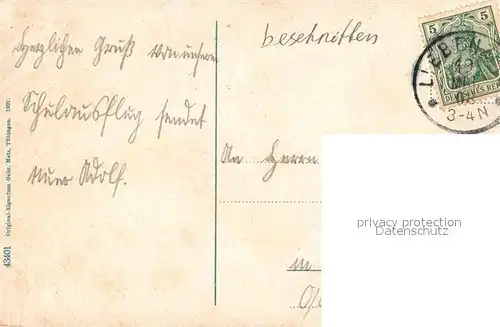 Herzlichen Gruß von unserem
Schulausflug sendet
Euer Adolf.
beschnitten
An Herrn
in
5 5
DEUTSCHES REICH
3-4N
43401 Original-Eigentum Gebr. Metz, Tübingen. 1907.
privacy protection
Datenschutz